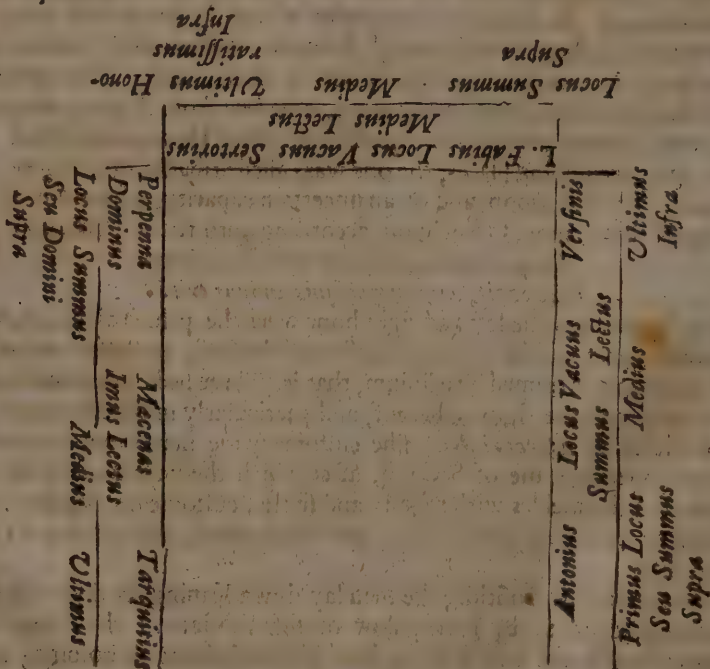 Locus Summus Medius Ultimus Hono-
Supra ratissimus
Infra
L. Fabius Locus Vacuus Sertorius
Medius Lectus
Perpenna Mæcenas Tarquitius
Dominus Imus Lectus
Locus Summus Medius Ultimus
Seu Domini
Supra
Antonius Locus Vacuus Versinis
Summus Lectus
Primus Locus Medius Ultimus
Seu Summus Infra
Supra